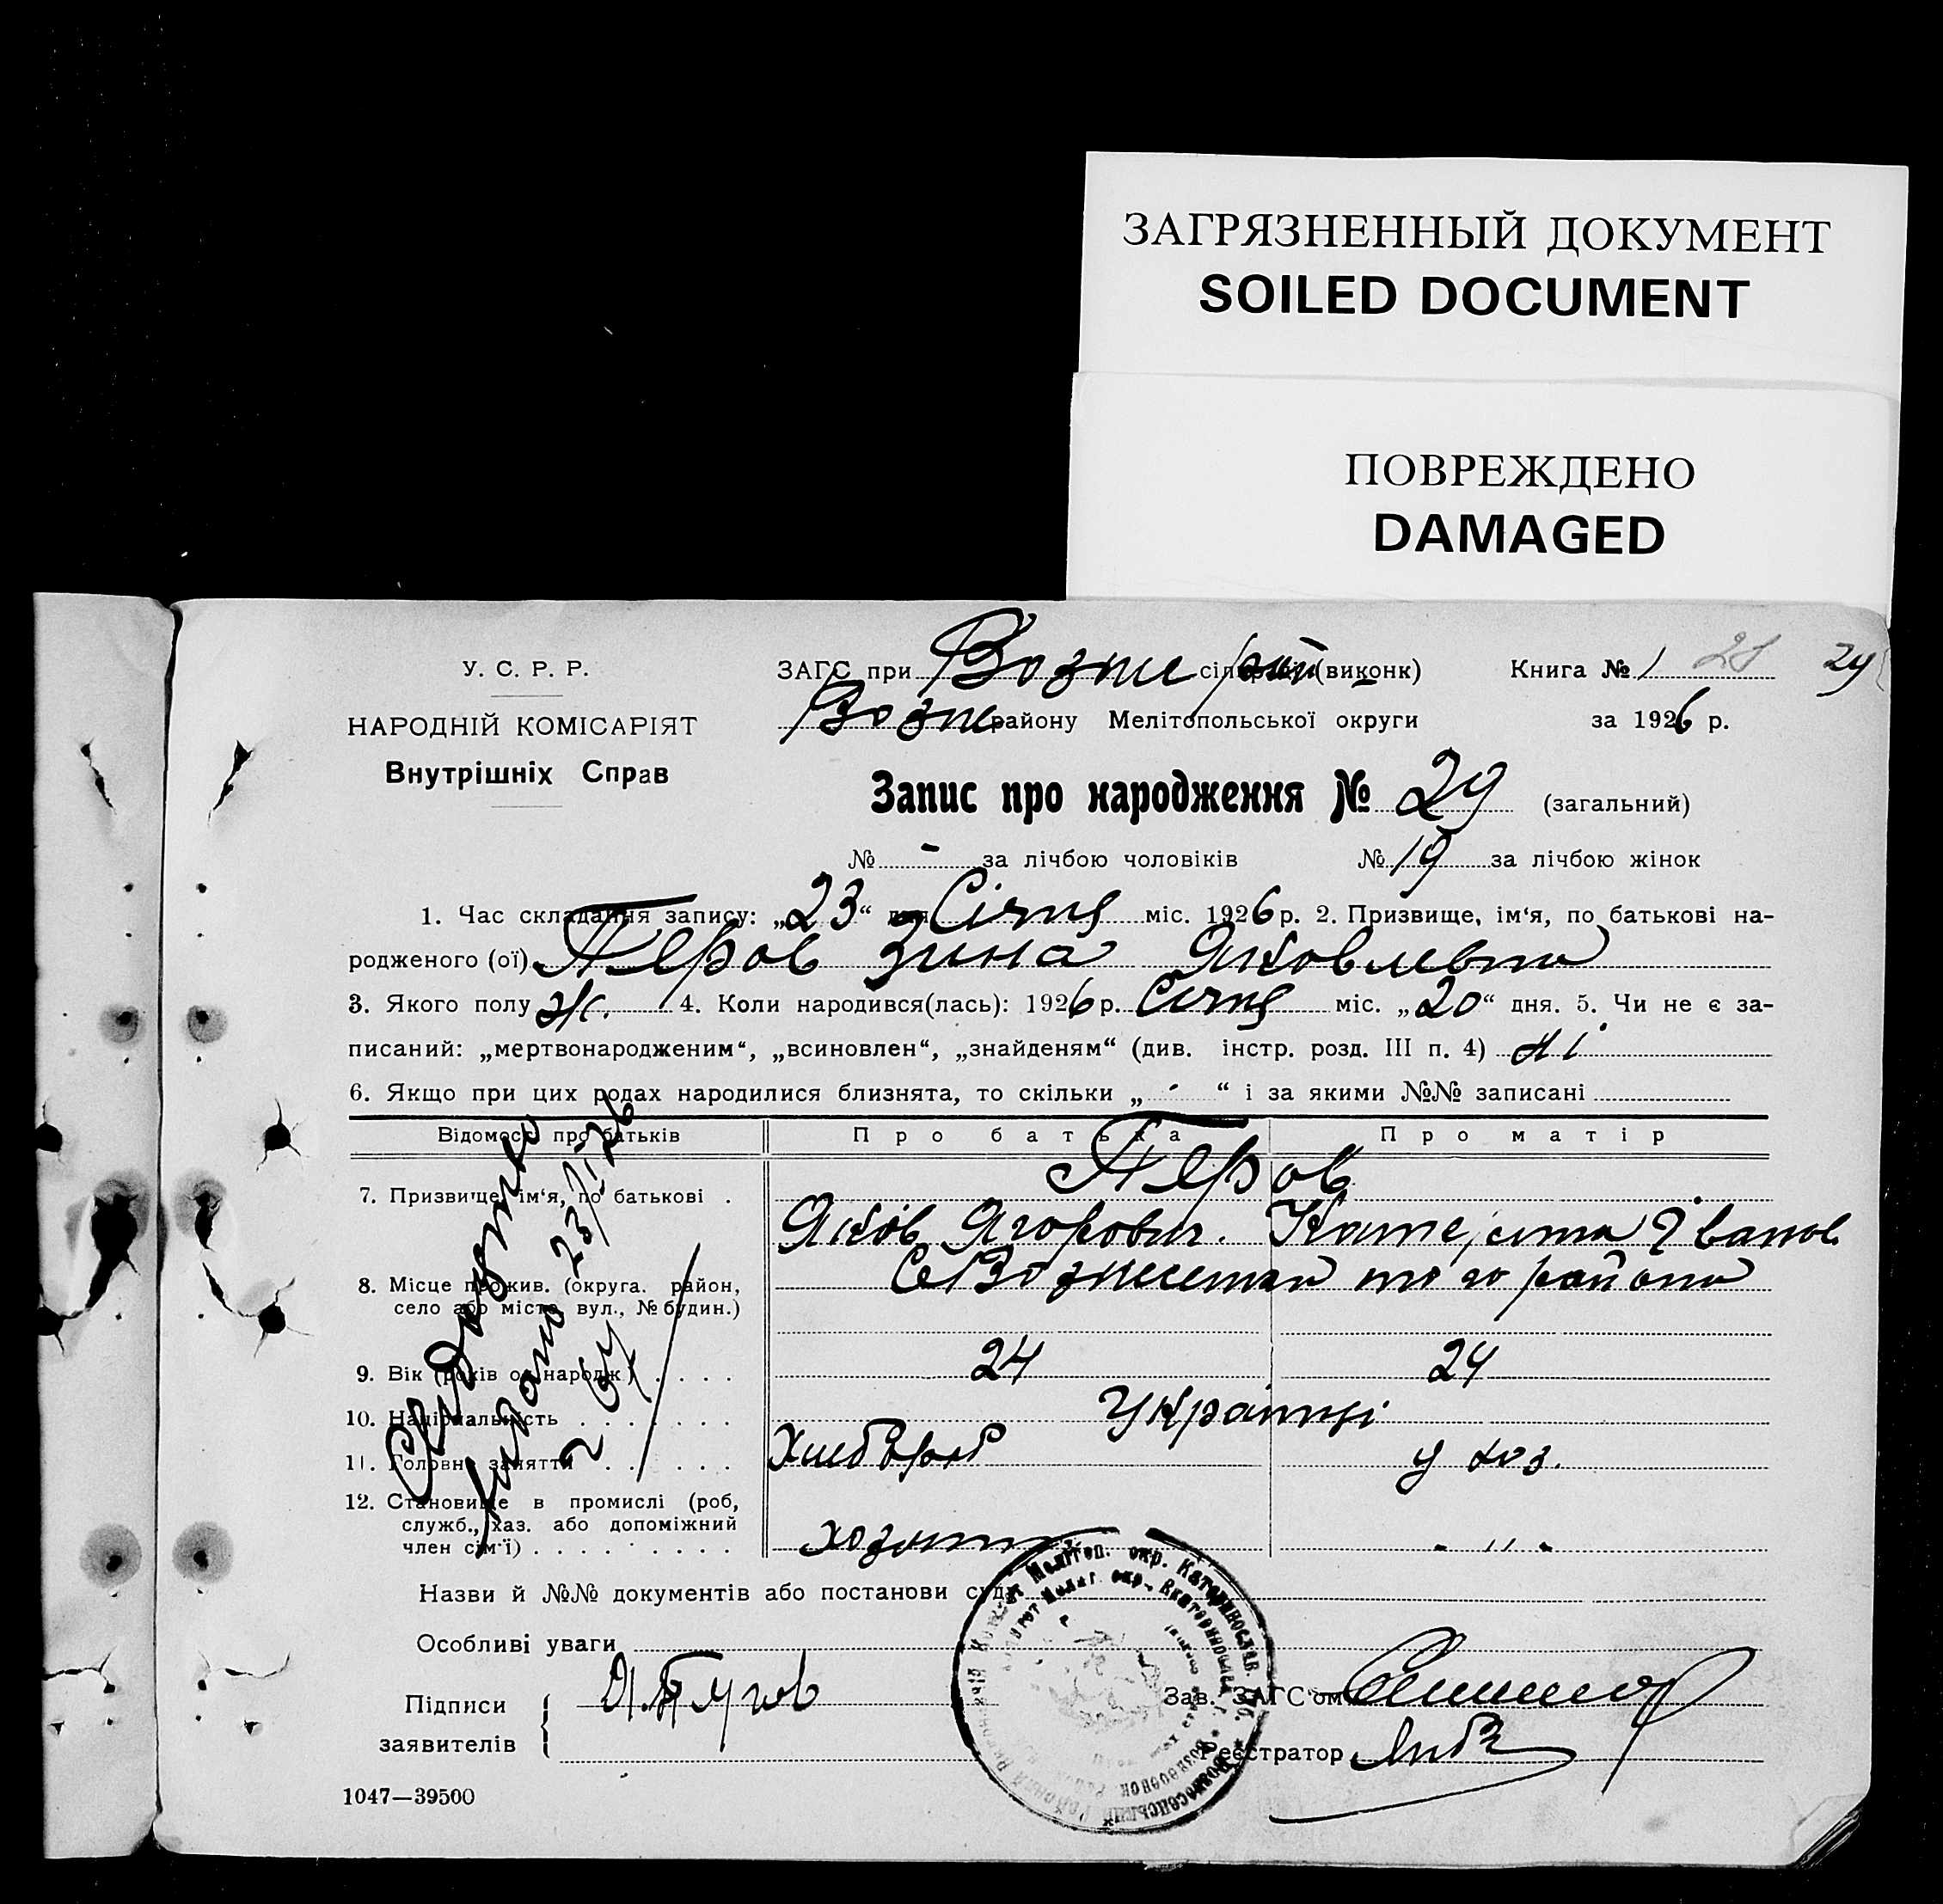 ЗАГРЯЗНЕННЫЙ ДОКУМЕНТ
SOILED DOCUMENT
ПОВРЕЖДЕНО
DAMAGED
У. С. Р. Р.
НАРОДНІЙ КОМІСАРІЯТ
Внутрішніх Справ
ЗАГС при Возне рай (виконк) Книга № 1 21 29
Возне району Мелітопольської округи за 1926 р.
Запис про народження № 29 (загальний)
№ - за лічбою чоловіків № 19 за лічбою жінок
1. Час складання запису: „23“ дня Січня міс. 1926 р. 2. Призвище, ім‘я, по батькові на-
родженого (ої) Перов Зина Яковлевна
3. Якого полу ж. 4. Коли народився(лась): 1926 р. Січня міс. „20“ дня. 5. Чи не є за-
писаний: „мертвонародженим“, „всиновлен“, „знайденям“ (див. інстр. розд. III п. 4) Ні
6. Якщо при цих родах народилися близнята, то скільки „ - “ і за якими №№ записані
Відомості про батьків Про батька Про матір
7. Призвище, ім‘я, по батькові . Перов
Яков Ягорович. Іванов
8. Місце прожив. (округа. район, району
село або місто, вул., № будин.)
9. Вік (років од народж.) . . . . 24 24
10. Національність . . . . . . . Українці
11. Головні заняття . . . . . . Хлебороб у хоз.
12. Становище в промислі (роб,
служб., хаз. або допоміжний
член сім‘ї) . . . . . . . . . - " -
23/I 26
Назви й №№ документів або постанови суда
Особливі уваги
Підписи
заявителів
Зав. ЗАГС‘ом
Реєстратор
1047—39500